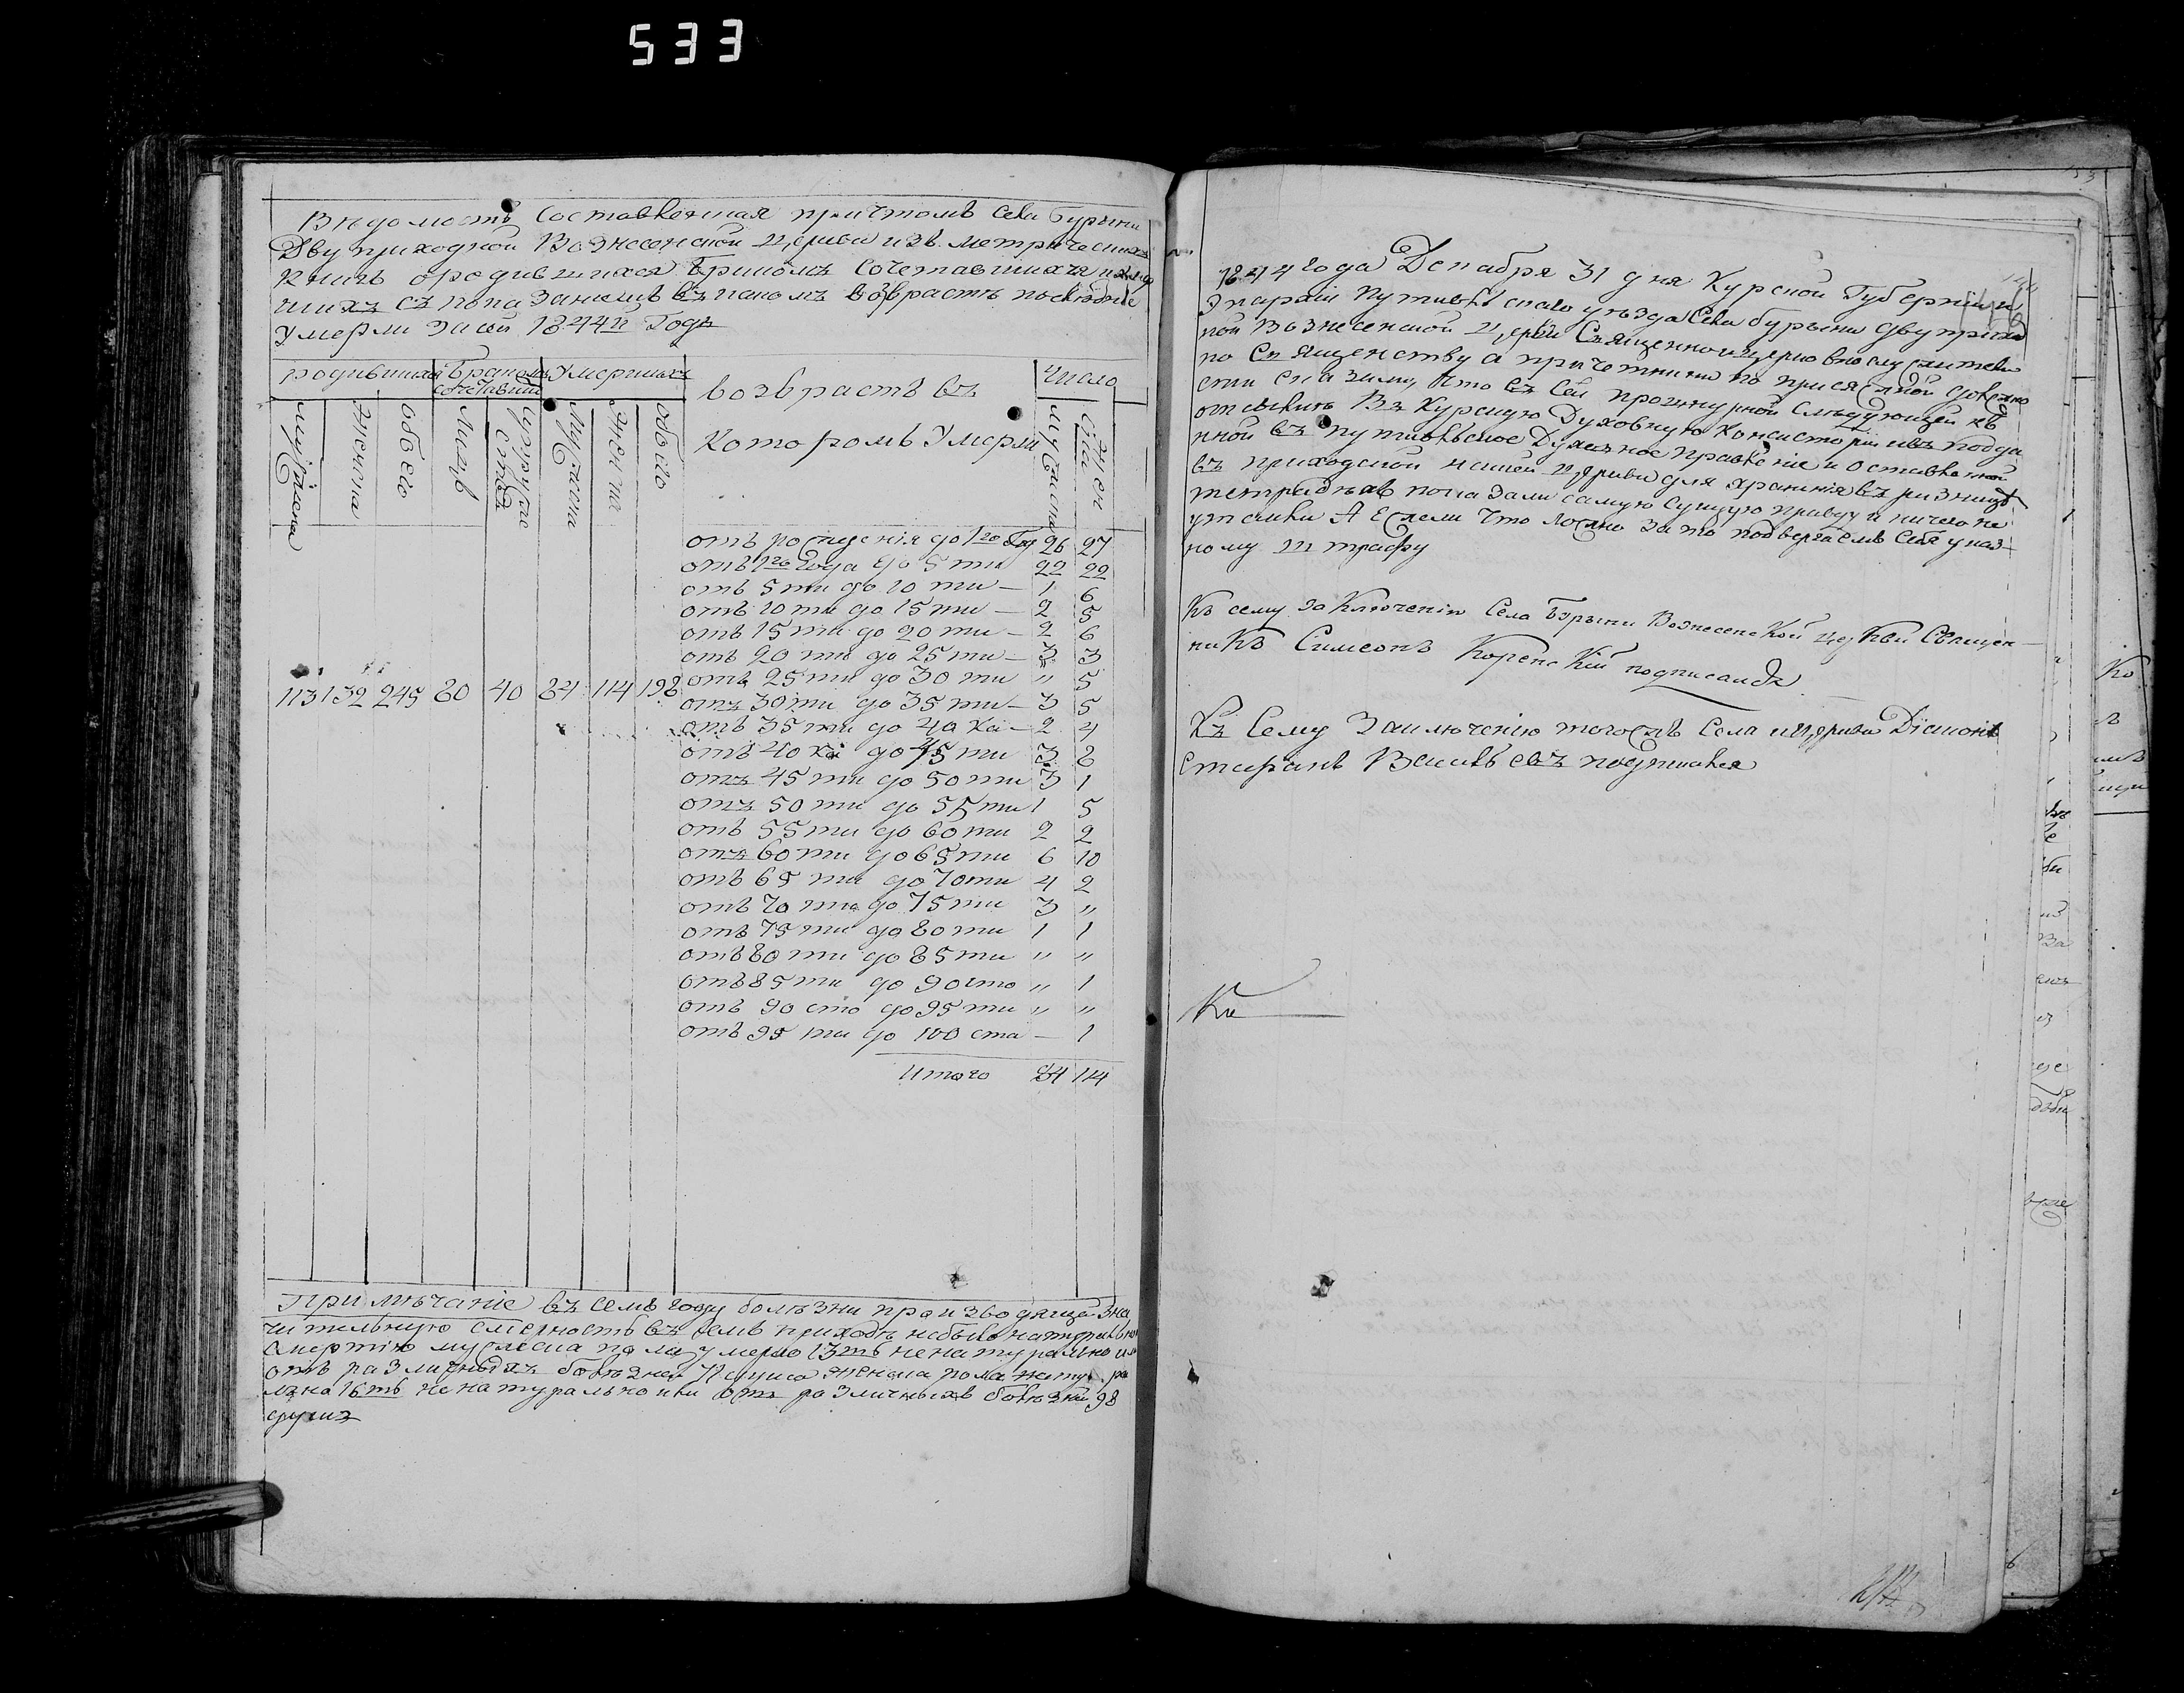 533
Вѣдомость Составленная причтомъ Села Бурыни
Двуприходной Вознесенской церкви изъ метрическихъ
Книгъ о родившихся Бракомъ Сочетавшихся и умер
шихъ съ показаніемъ въ какомъ возврастѣ последніе
Умерли за сей 1844й Годъ
родившихся Бракомъ Сочетавш Умершихъ возврастъ въ Которомъ Умерли Число
мужеска Женска обоего Лицъ Супруже ствъ Мужеска Женска обоего Мужеска Жен ска
отъ рождения до 1го Год 26 27
отъ 1го года до 5ти 22 22
отъ 5ти до 10ти — 1 6
отъ 10ти до 15ти — 2 5
отъ 15ти до 20ти — 2 6
отъ 20ти до 25ти — 3 3
отъ 25ти до 30ти " 5
113 132 245 80 40 84 114 198
отъ 30ти до 35ти — 3 5
отъ 35ти до 40ка — 2 4
отъ 40ка до 45ти 3 8
отъ 45ти до 50ти 3 1
отъ 50ти до 55ти 1 5
отъ 55ти до 60ти 2 2
отъ 60ти до 65ти 6 10
отъ 65ти до 70ти 4 2
отъ 70ти до 75ти 3 "
отъ 75ти до 80ти 1 1
отъ 80ти до 85ти " "
отъ 85ти до 90сто " 1
отъ 90сто до 95ти " "
отъ 95ти до 100ста — 1
Итого 84 114
Примѣчаніе въ семъ году болѣзни производящей зна
чительную смерность въ семъ приходѣ небыло натурально
смертію мужеска пола умерло 13ть ненатурально и
отъ различныхъ болѣзней 71 душа женска пола нату ра
льна 16ть ненатурально или отъ различныхъ болѣзней 98
душъ
1844 года Декабря 31 дня Курской Губерніи и
Эпархіи Путивльскаго уѣзда Села бурыни двуприход
ной Вознесенской церкви Священноицерковнослужители
по Священству а причетники по присяжной должно
сти сказали, что въ сей прошнурной слѣдующей къ
отсылкѣ Въ Курскую Духовную Консисторію въ пода
нной въ путивльское Духовное правленіе и оставленной
въ приходской нашей церкви для храненія въ ризницѣ
тетрадѣхъ показали самую сущую правду и ничего не
утаили А Ежели что ложно за то подвергаемъ себя указ-
ному штрафу
Къ сему заключенію Села Бурыни Вознесенской церкви Священ-
никъ Симеонъ Коренскій подписался
Къ Сему Заключенію тогожъ Села и церкви Діаконъ
Стефанъ Васильевъ подписался
Ко